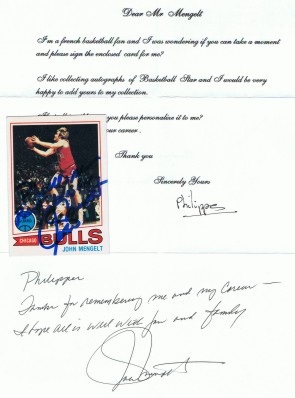 Dear Mr Mengelt
I'm a french basketball fan and I was wondering if you can take a moment
and please sign the enclosed card for me?
I like collecting autographs of Basketball Star and I would be very
happy to add yours to my collection.
you please personalize it to me?
our career .
Thank you
Sincerely Yours
Philippe
CHICAGO
BULLS
JOHN MENGELT
Philippe
for remembering me and my career —
I hope all is well with you and family